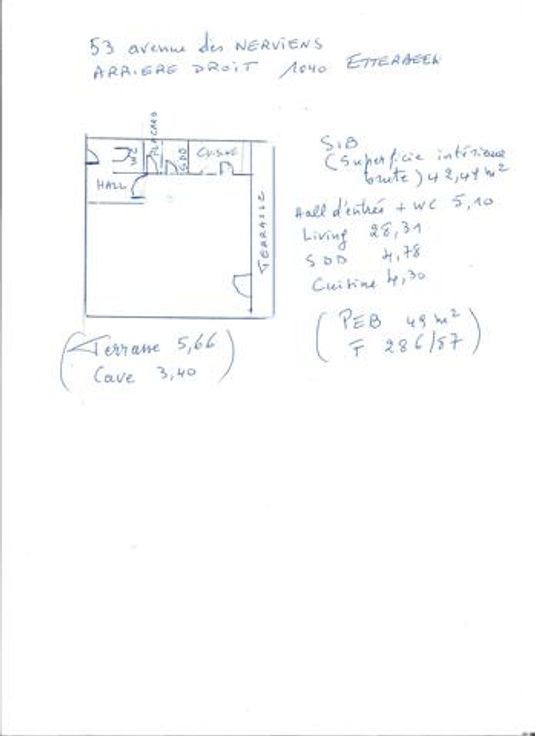 53 avenue des NERVIENS
ARRIERE DROIT 1040 ETTERBEEK
PLACARD
WC
SDD
CUISINE
HALL
TERRASSE
SIB
(Superficie intérieure
brute) 42,49 m²
Hall d'entrée + WC 5,10
Living 28,31
SDD 4,78
Cuisine 4,30
(PEB 49 m²
F 286/57)
(Terrasse 5,66
Cave 3,40)